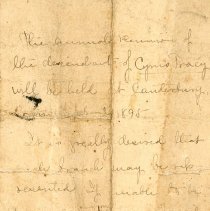 The annual reunion of
the descendants of Cyrus Tracy
will be held at Canterbury
1895
It is greatly desired that
branch may be
represented If unable